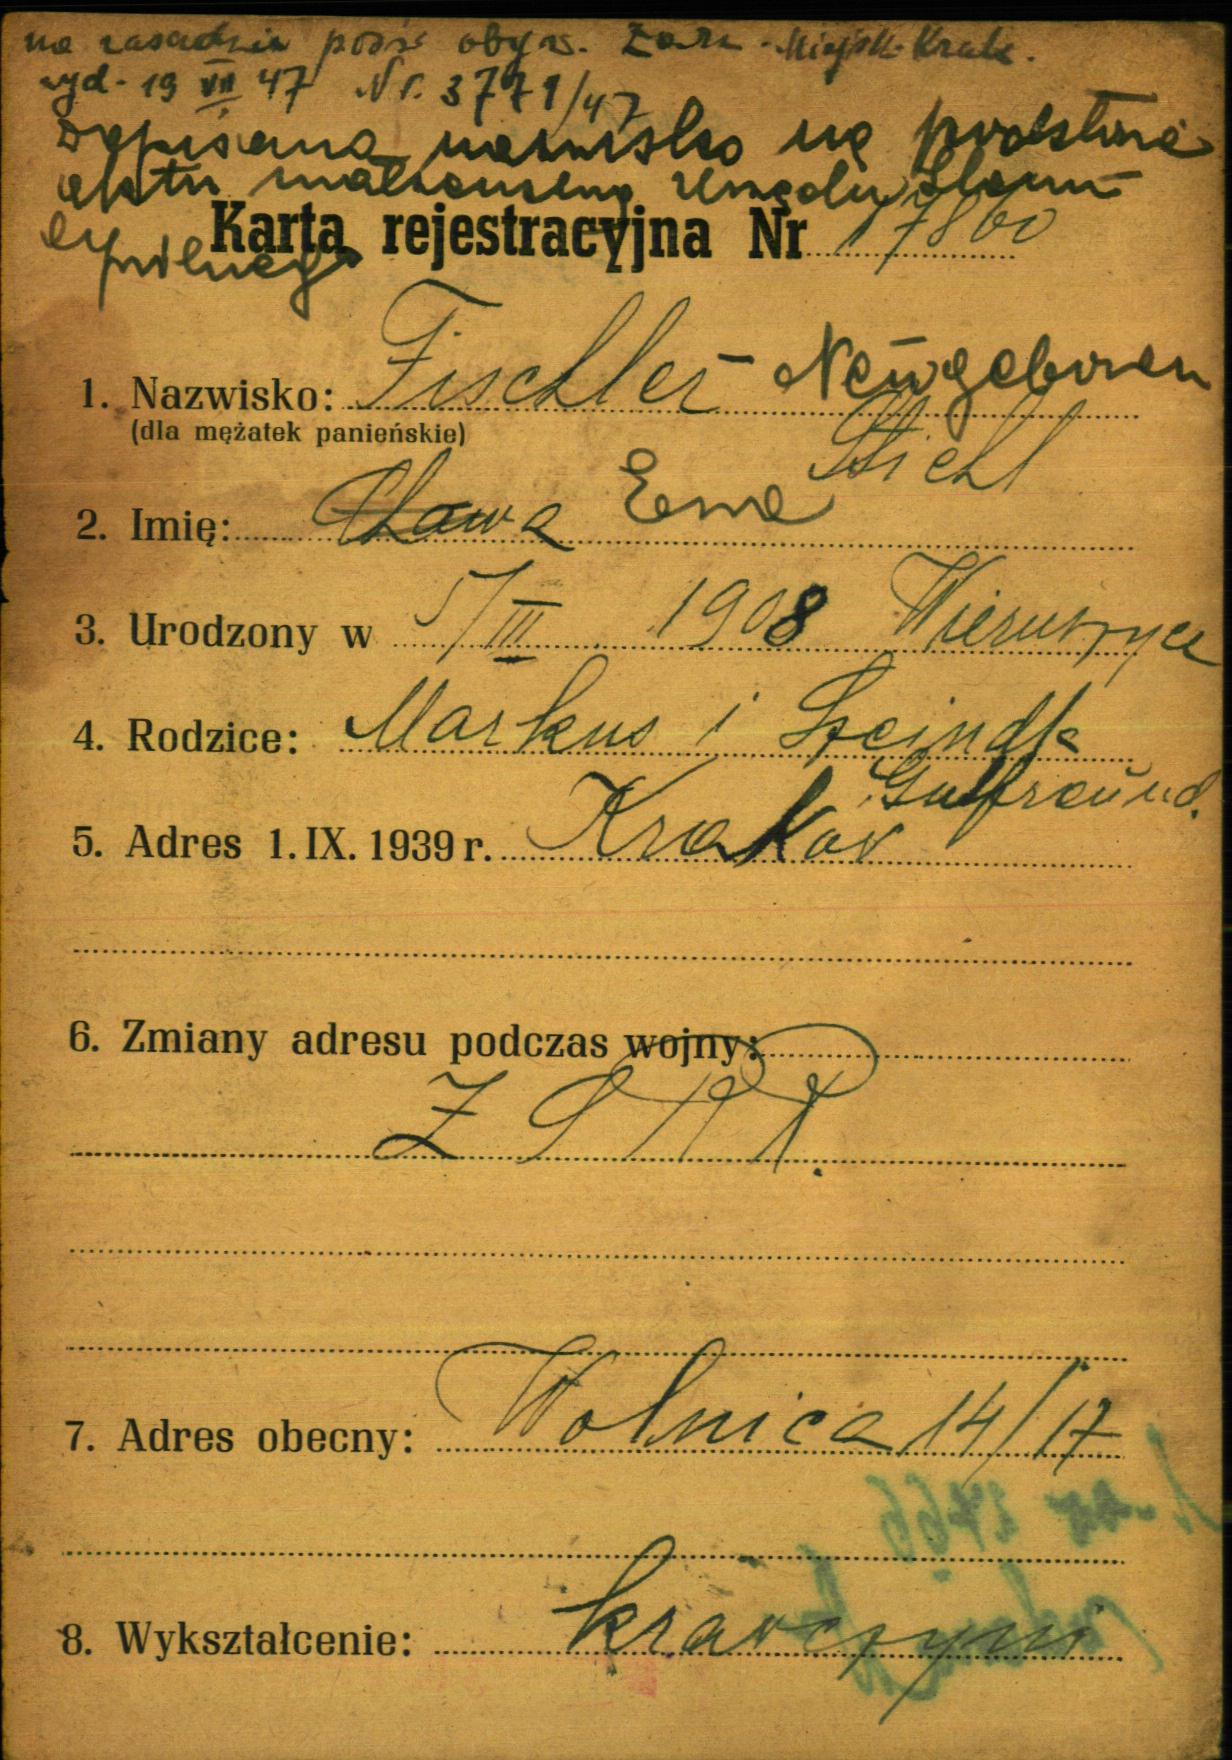 na zasadzie pośw obyw. Zarz. Miejsk. Krak.
wyd. 19 VII 47 Nr. 3771/47
zapisano nazwisko na podstawie
aktu małżeńskiego Urzędu Stanu
cywilnego
Karta rejestracyjna Nr 17860
1. Nazwisko: Fischler - Neugeboren
(dla mężatek panieńskie) Stiehl
2. Imię: Chawa Ewa
3. Urodzony w 5/III 1908 Wieruszyce
4. Rodzice: Markus i Szeindla
Gutfreund.
5. Adres 1. IX. 1939 r. Krakow
6. Zmiany adresu podczas wojny:
Z S R R.
7. Adres obecny: Wolnica 14/17
8. Wykształcenie: krawczyni